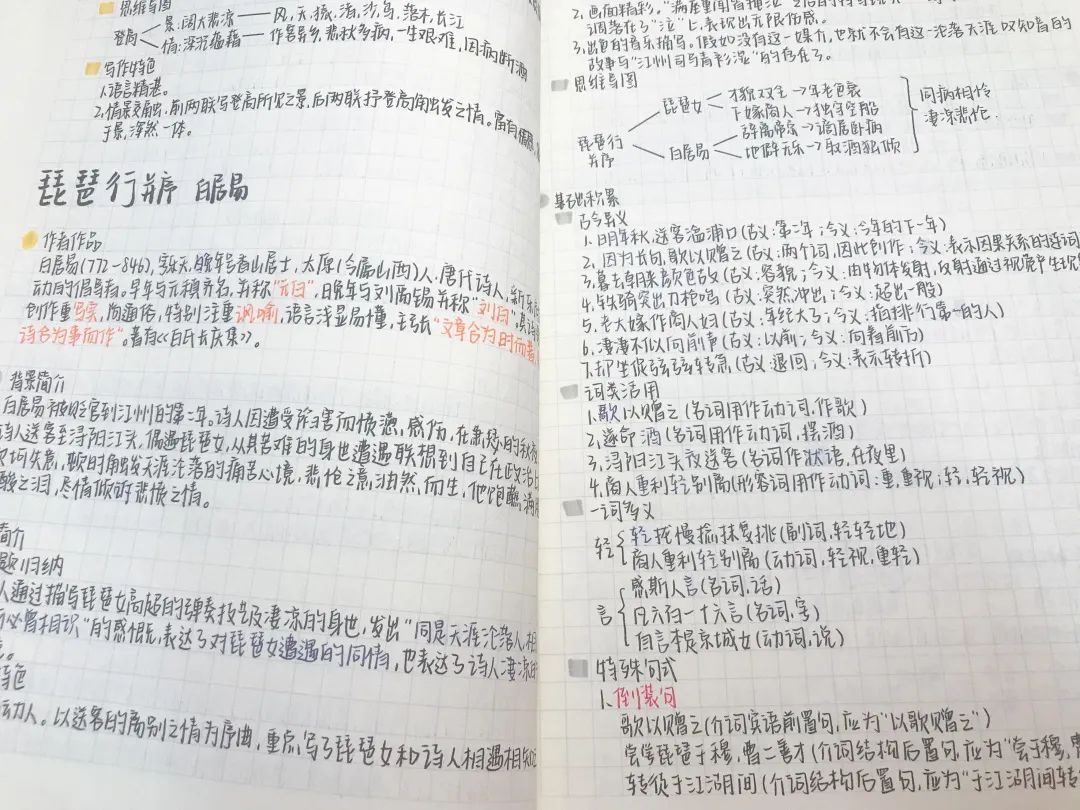 思维导图
登高
景:阔大悲凉——风,天,猿,渚,沙,鸟,落木,长江
情:深沉蕴藉——作客异乡,悲秋多病,一生艰难,因病断酒
写作特色
1.语言精湛。
2.情景交融,前两联写登高所见之景,后两联抒登高触发之情。富有
于景,浑然一体。
琵琶行并序 白居易
作者作品
白居易(772-846),字乐天,晚年号香山居士,太原(今属山西)人.唐代诗人,新乐府
动的倡导者。早年与元稹齐名,并称"元白",晚年与刘禹锡并称"刘白"。其诗
创作重写实,尚通俗,特别注重讽喻,语言浅显易懂,主张"文章合为时而著
诗合为事而作"。著有《白氏长庆集》。
背景简介
白居易被贬官到江州的第二年。诗人因遭受陷害而愤懑,感伤,在萧瑟的秋夜
诗人送客至浔阳江头,偶遇琵琶女,从其苦难的身世遭遇联想到自己在政治上
坎坷失意,顿时触发天涯沦落的痛苦心境,悲怆之意油然而生,他饱蘸满
酸之泪,尽情倾诉悲愤之情。
简介
题归纳
人通过描写琵琶女高超的弹奏技艺及凄凉的身世,发出"同是天涯沦落人相
何必曾相识"的感慨,表达了对琵琶女遭遇的同情,也表达了诗人凄凉的
。
特色
动人。以送客的离别之情为序曲,重点写了琵琶女和诗人相遇相知
2.画面精彩,"满座重闻皆掩泣"
调落在了"泣"上,表现出无限伤感。
3.出色的音乐描写。假如没有这一媒介,也就不会有这一沦落天涯
故事与"江州司马青衫湿"的存在了。
思维导图
琵琶行并序
琵琶女
才貌双全→年老色衰
下嫁商人→独守空船
白居易
辞离帝京→谪居卧病
地僻无乐→取酒独倾
同病相怜
凄凉悲伧.
基础积累
古今异义
1.明年秋,送客湓浦口(古义:第二年;今义:今年的下一年)
2.因为长句,歌以赠之(古义:两个词,因此创作;今义:表示因果关系的连词
3.暮去朝来颜色故(古义:容貌;今义:由物体发射,反射通过视觉产生现
4.铁骑突出刀枪鸣(古义:突然冲出;今义:超出一般)
5.老大嫁作商人妇(古义:年纪大了;今义:指排行第一的人)
6.凄凄不似向前声(古义:以前;今义:向着前方)
7.却坐促弦弦转急(古义:退回;今义:表示转折)
词类活用
1.歌以赠之(名词用作动词,作歌)
2.遂命酒(名词用作动词,摆酒)
3.浔阳江头夜送客(名词作状语,在夜里)
4.商人重利轻别离(形容词用作动词:重,重视;轻,轻视)
一词多义
轻
轻拢慢捻抹复挑(副词,轻轻地)
商人重利轻别离(动词,轻视,看轻)
言
感斯人言(名词,话)
凡六百一十六言(名词,字)
自言本是京城女(动词,说)
特殊句式
1.倒装句
歌以赠之(介词宾语前置句,应为"以歌赠之")
尝学琵琶于穆,曹二善才(介词结构后置句,应为"尝于穆,曹
转徙于江湖间(介词结构后置句,应为"于江湖间转